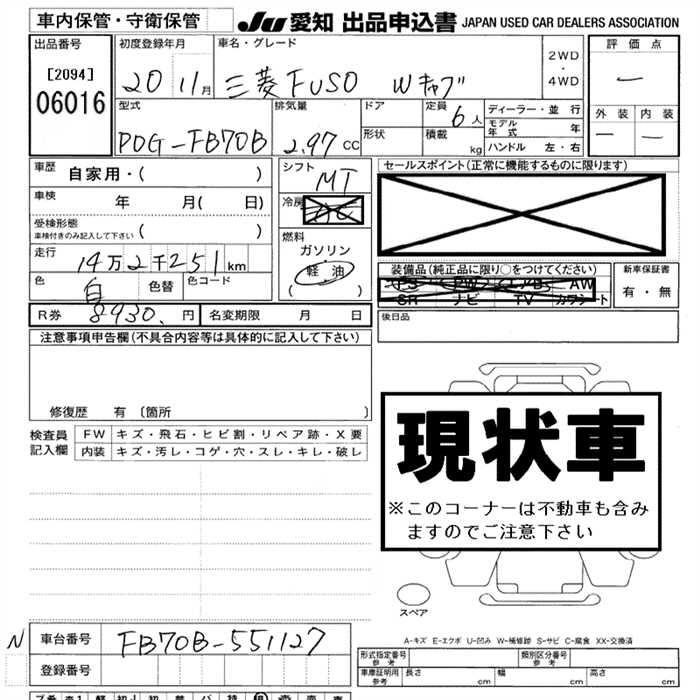 車内保管・守衛保管 JU 愛知 出品申込書 JAPAN USED CAR DEALERS ASSOCIATION
出品番号 初度登録年月 車名・グレード 評価点
[2094] 2WD
06016 20 11月 三菱FUSO Wキャブ ・ ー
4WD
型式 排気量 ドア 定員 6人 ディーラー・並行 外装 内装
モデル年式 年
PDG-FB70B 2.97CC 形状 積載 kg ハンドル 左・右 ー ー
車歴 自家用・( ) シフト MT セールスポイント(正常に機能するものに限ります)
車検 年 月( 日) 冷房 AC
受検形態 ( )
車検付きのみ記入して下さい 燃料
走行 14万2千251km ガソリン 装備品(純正品に限り○をつけてください) 新車保証書
色 白 色替 色コード 軽油 PS PW AW 有・無
( ) SR ナビ TV カワシート
R券 8930.円 名変期限 月 日 後日品
注意事項申告欄(不具合内容等は具体的に記入して下さい)
修復歴 有 〔箇所 〕
検査員 FW キズ・飛石・ヒビ割・リペア跡・X要
記入欄 内装 キズ・汚レ・コゲ・穴・スレ・キレ・破レ
現状車
※このコーナーは不動車も含み
ますのでご注意下さい
スペア
A-キズ E-エクボ U-凹み W-補修跡 S-サビ C-腐食 XX-交換済
N 車台番号 FB70B-551127
形式指定番号 参考 類別区分番号 参考
登録番号 車庫証明用 参考 長さ cm 幅 cm 高さ cm